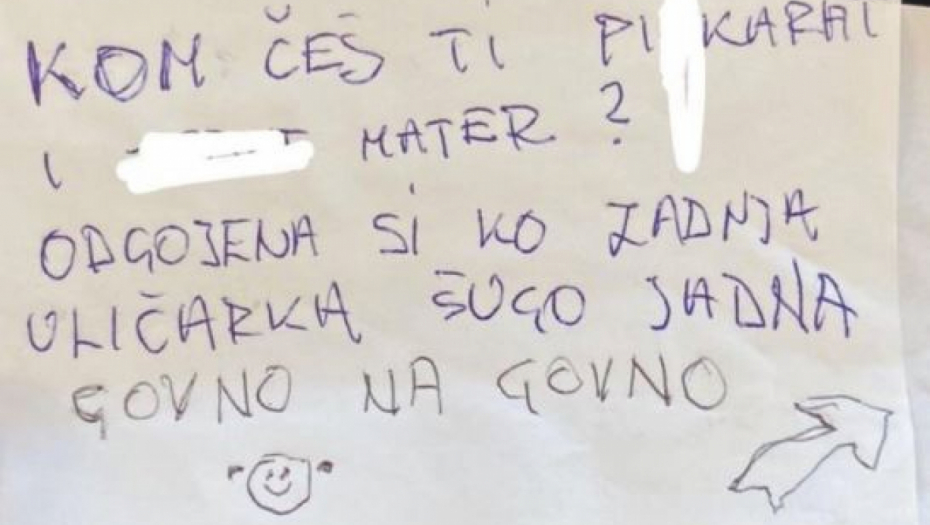 KOM ČEŠ TI PI KARATI
I MATER ?
ODGOJENA SI KO ZADNJA
ULIČARKA ŠUGO JADNA
GOVNO NA GOVNO